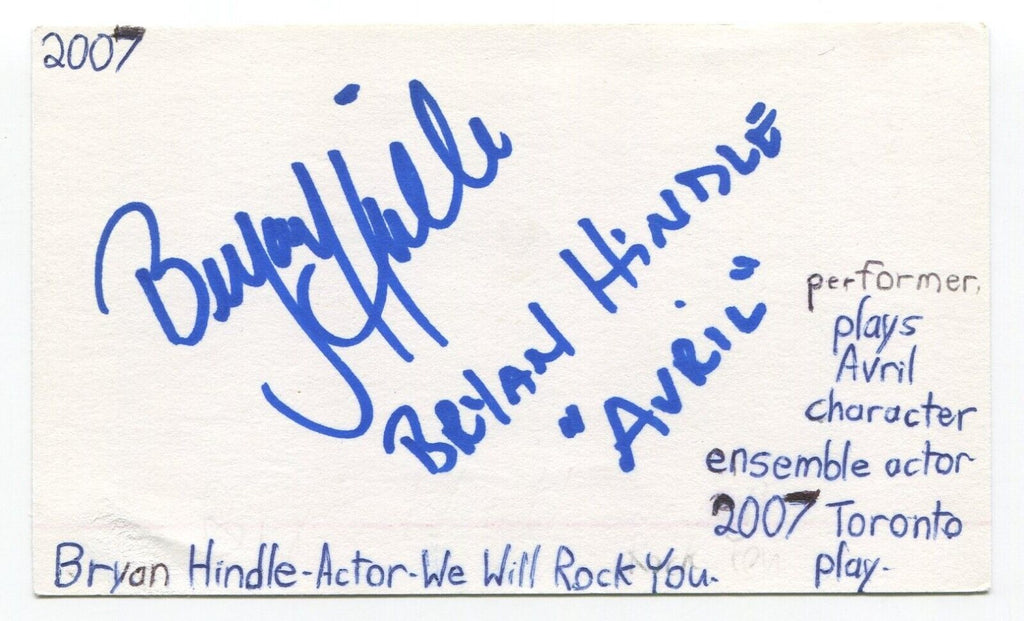 2007
Bryan Hindle
BRYAN HiNDLE
"AVRiL"
performer,
plays
Avril
character
ensemble actor
2007 Toronto
play.
Bryan Hindle-Actor-We Will Rock You.